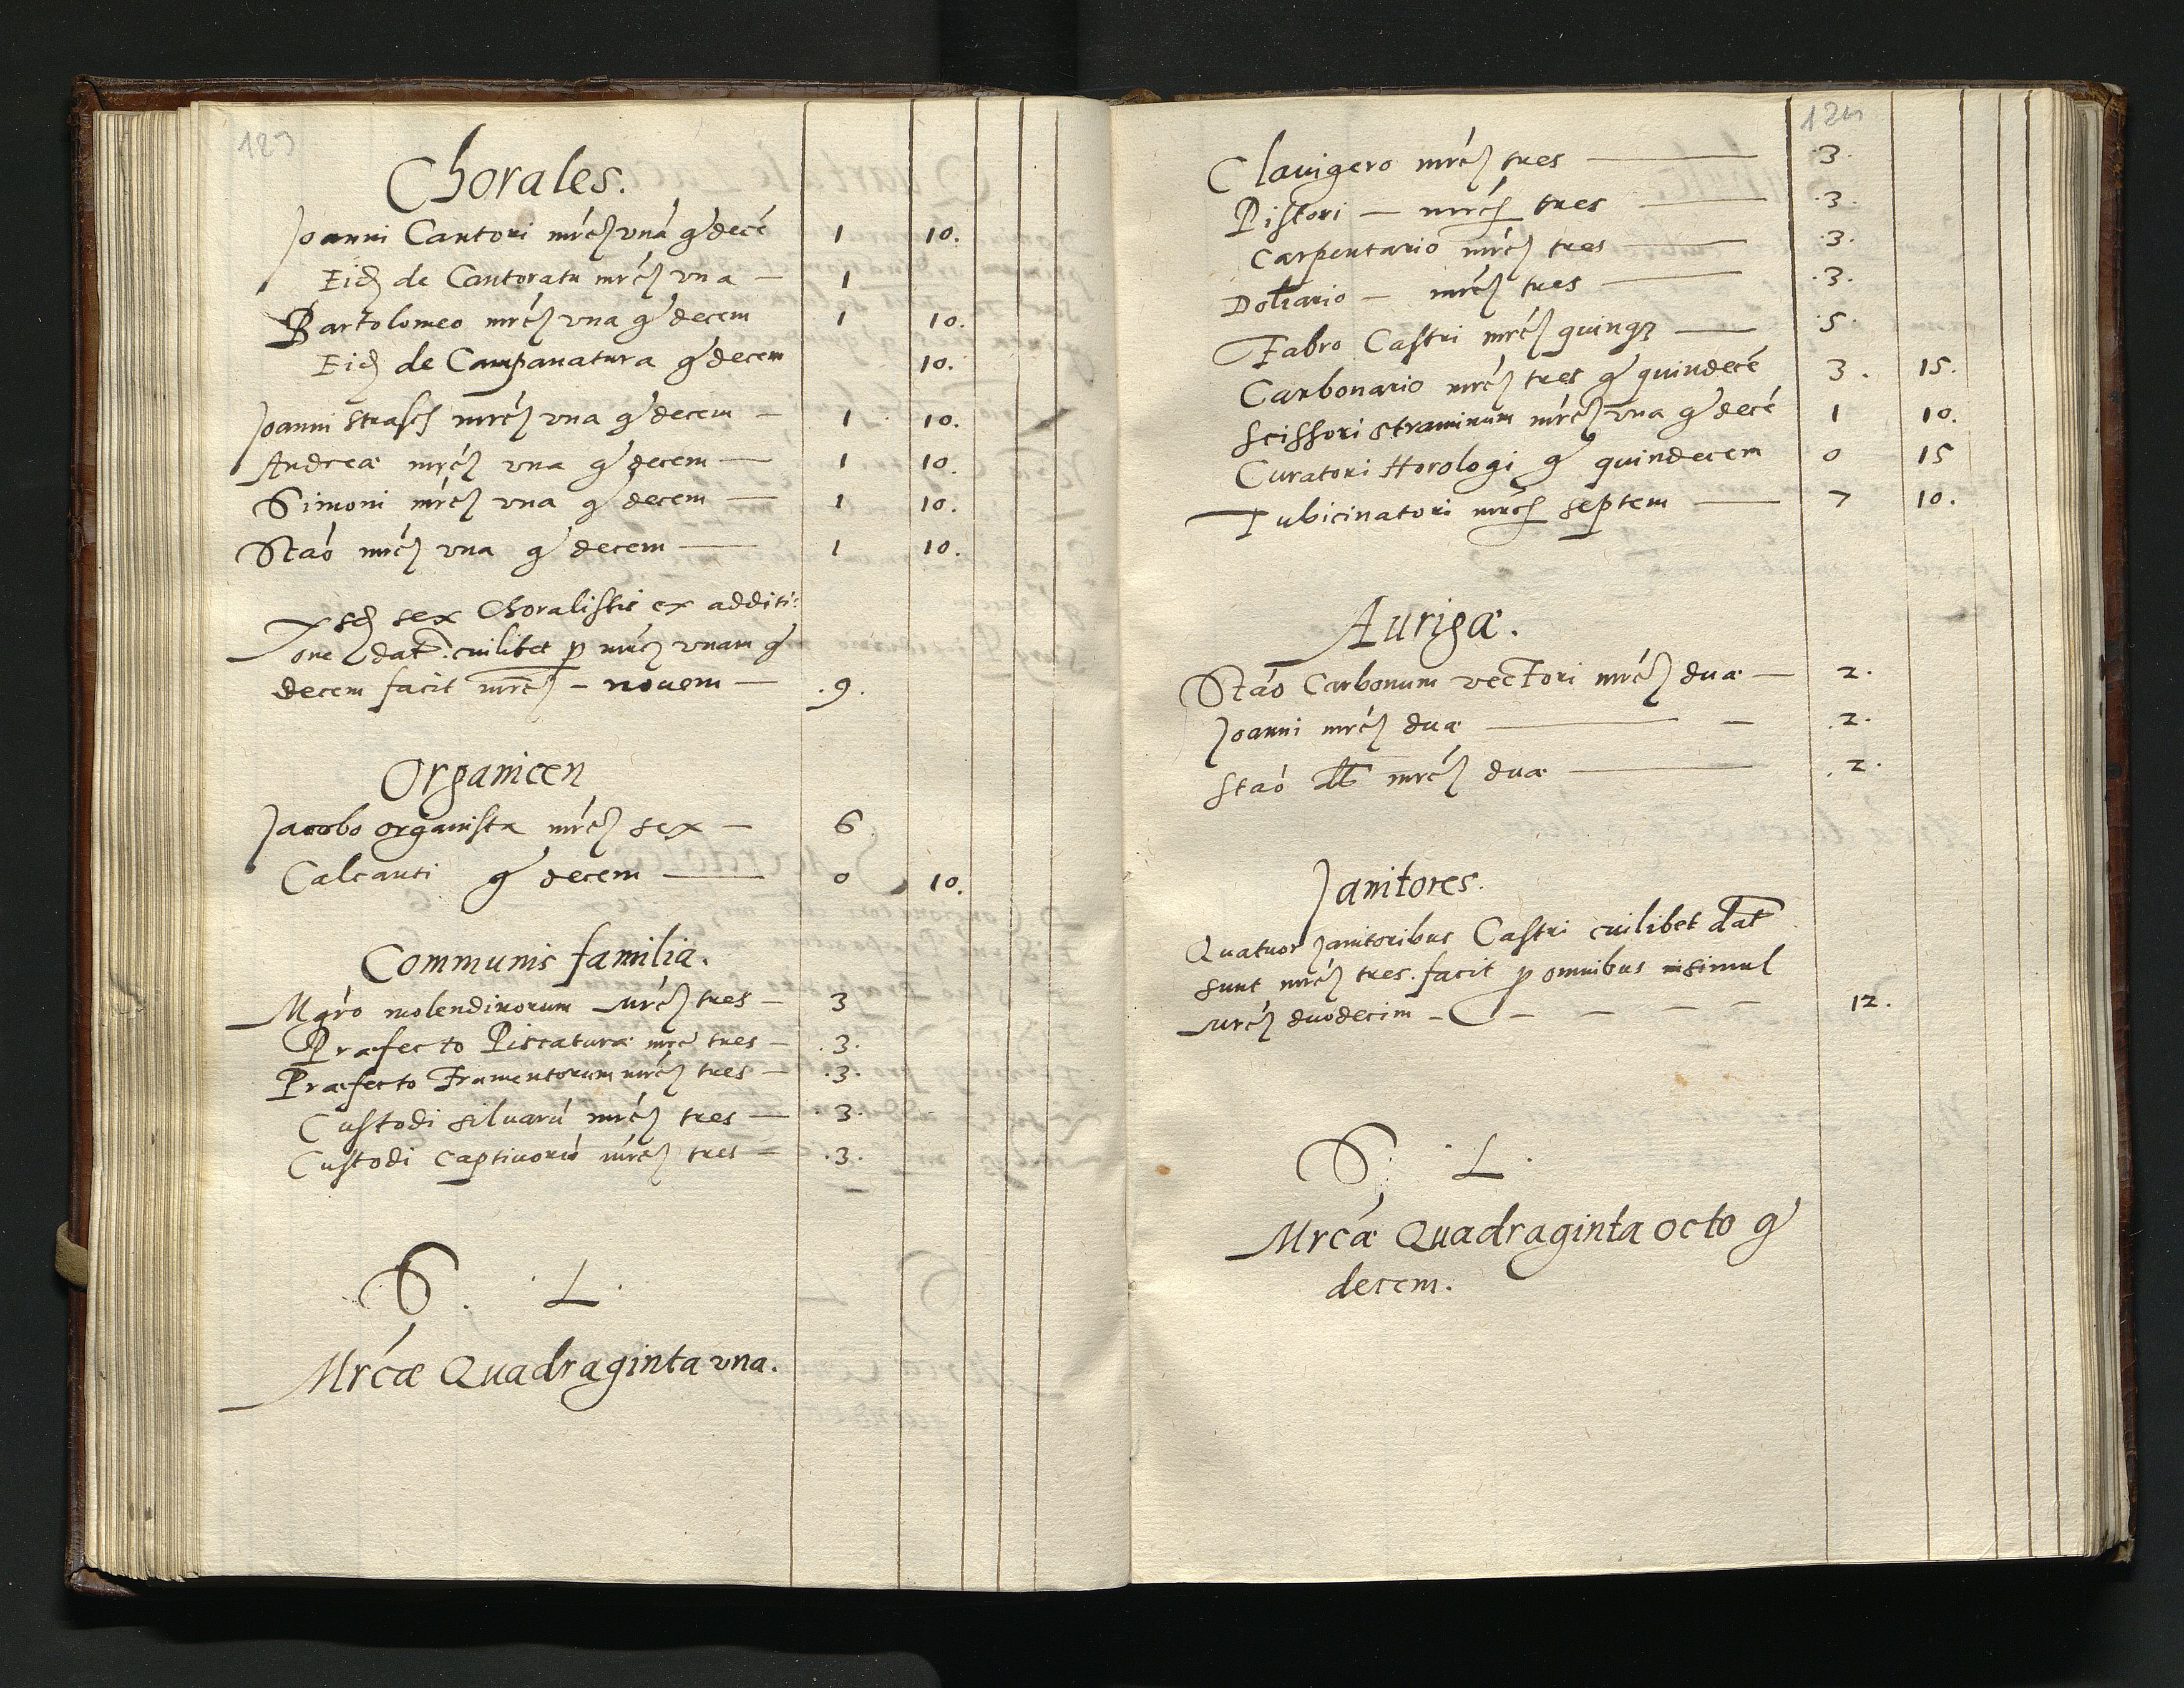 123
Chorales.
Joanni Cantori mrcs vná g decé 1 10.
Eid de Cantoratu mrcs vna — 1
Bartolomeo mrcs vna g decem 1 10.
Eid de Campanatura g decem 10.
Joanni mrcs vna g decem — 1 10.
Andreæ mrcs vna g decem — 1 10.
Simoni mrcs vna g decem — 1 10.
Stáo mrcs vna g decem — 1 10.
sex Choralistis ex additi:
one dat cuilibet p mrcs vnam g
decem facit mrcs – nouem — .9.
Organicen
Jacobo organistæ mrcs sex — 6
Calcanti g decem — 0 10.
Communis familia.
Mgro molendinorum mrcs tres — 3
Præfecto Piscaturæ mrc tres — .3.
Præfecto Frumentorum mrcs tres — .3.
Custodi siluarú mrcs tres — .3.
Custodi captiuorú mrcs tres — .3.
S. L.
Mrcæ Quadraginta vna.
124
Clauigero mrcs tres — 3.
Pistori — mrcs tres — .3.
Carpentario mrcs tres — .3.
Doliario — mrcs tres — .3.
Fabro Castri mrcs quinqz — .5.
Carbonario mrcs tres g quindecé 3. 15.
Scissori straminum mrcs vna g decé 1 10.
Curatori Horologi g quindecem 0 15
Tubicinatori mrcs septem — 7 10.
Aurigæ.
Stáo Carbonum vectori mrcs duæ — 2.
Joanni mrcs duæ — — .2.
Stáo mrcs duæ — .2.
Janitores.
Quatuor Janitoribus Castri cuilibet dat
sunt mrcs tres. facit p omnibus insimul
mrcs duodecim – – – – 12.
S. L.
Mrcæ Quadraginta octo g
decem.